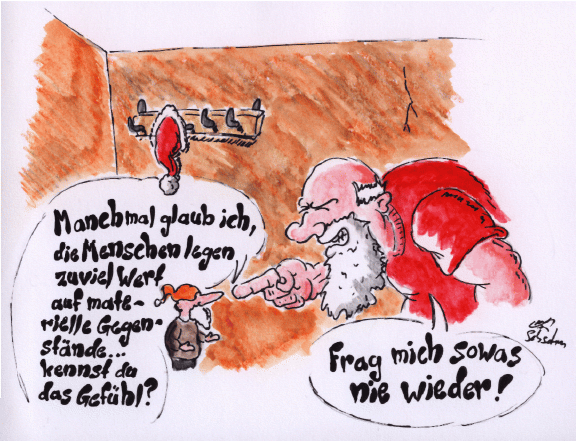 Manchmal glaub ich,
die Menschen legen
zuviel Wert
auf mate-
rielle Gegen-
stände...
kennst du
das Gefühl?
Frag mich sowas
nie wieder!